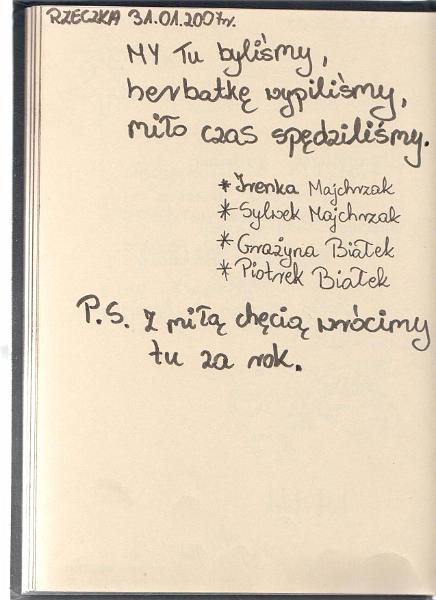 RZECZKA 31.01.2007r.
MY Tu byliśmy,
herbatkę wypiliśmy,
miło czas spędziliśmy.
* Irenka Majchrzak
* Sylwek Majchrzak
* Grażyna Białek
* Piotrek Białek
P.S. Z miłą chęcią wrócimy
tu za rok.